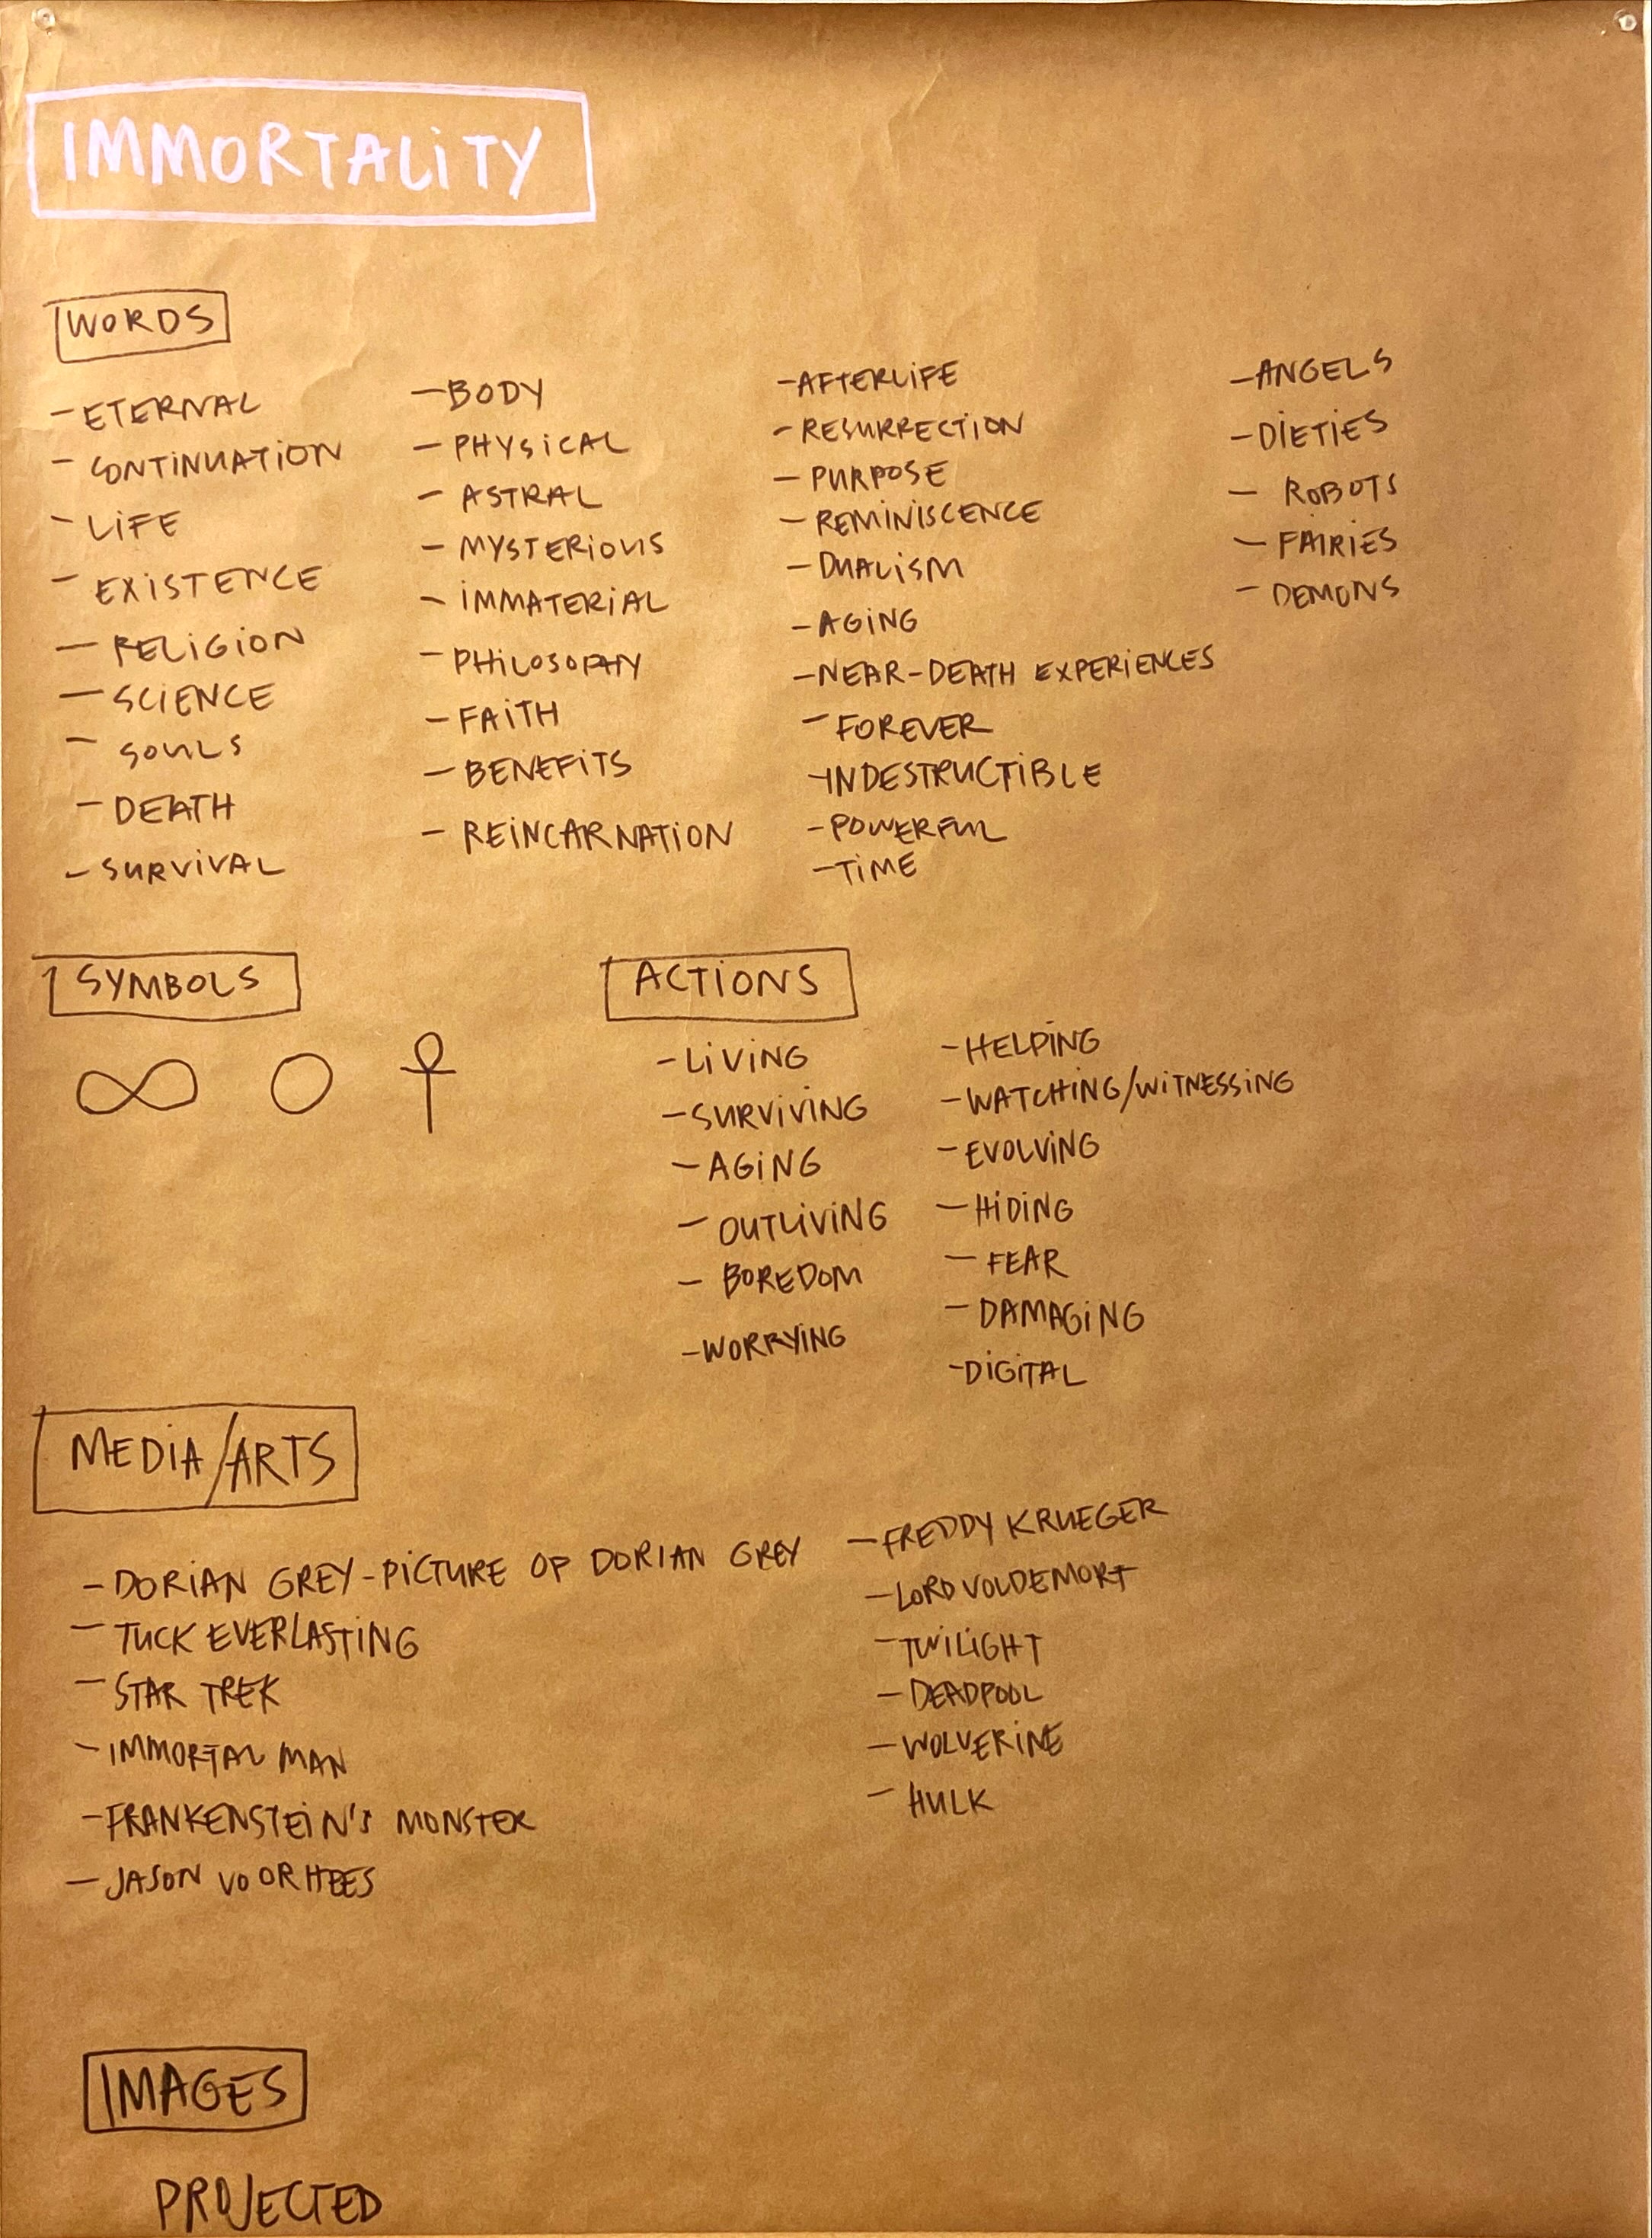 IMMORTALITY
WORDS
- ETERNAL
- CONTINUATION
- LIFE
- EXISTENCE
- RELIGION
- SCIENCE
- SOULS
- DEATH
- SURVIVAL
- BODY
- PHYSICAL
- ASTRAL
- MYSTERIOUS
- IMMATERIAL
- PHILOSOPHY
- FAITH
- BENEFITS
- REINCARNATION
- AFTERLIFE
- RESURRECTION
- PURPOSE
- REMINISCENCE
- DUALISM
- AGING
- NEAR-DEATH EXPERIENCES
- FOREVER
- INDESTRUCTIBLE
- POWERFUL
- TIME
- ANGELS
- DIETIES
- ROBOTS
- FAIRIES
- DEMONS
SYMBOLS
ACTIONS
- LIVING
- SURVIVING
- AGING
- OUTLIVING
- BOREDOM
- WORRYING
- HELPING
- WATCHING/WITNESSING
- EVOLVING
- HIDING
- FEAR
- DAMAGING
- DIGITAL
MEDIA/ARTS
- DORIAN GREY - PICTURE OF DORIAN GREY
- TUCK EVERLASTING
- STAR TREK
- IMMORTAL MAN
- FRANKENSTEIN'S MONSTER
- JASON VOORHEES
- FREDDY KRUEGER
- LORD VOLDEMORT
- TWILIGHT
- DEADPOOL
- WOLVERINE
- HULK
IMAGES
PROJECTED